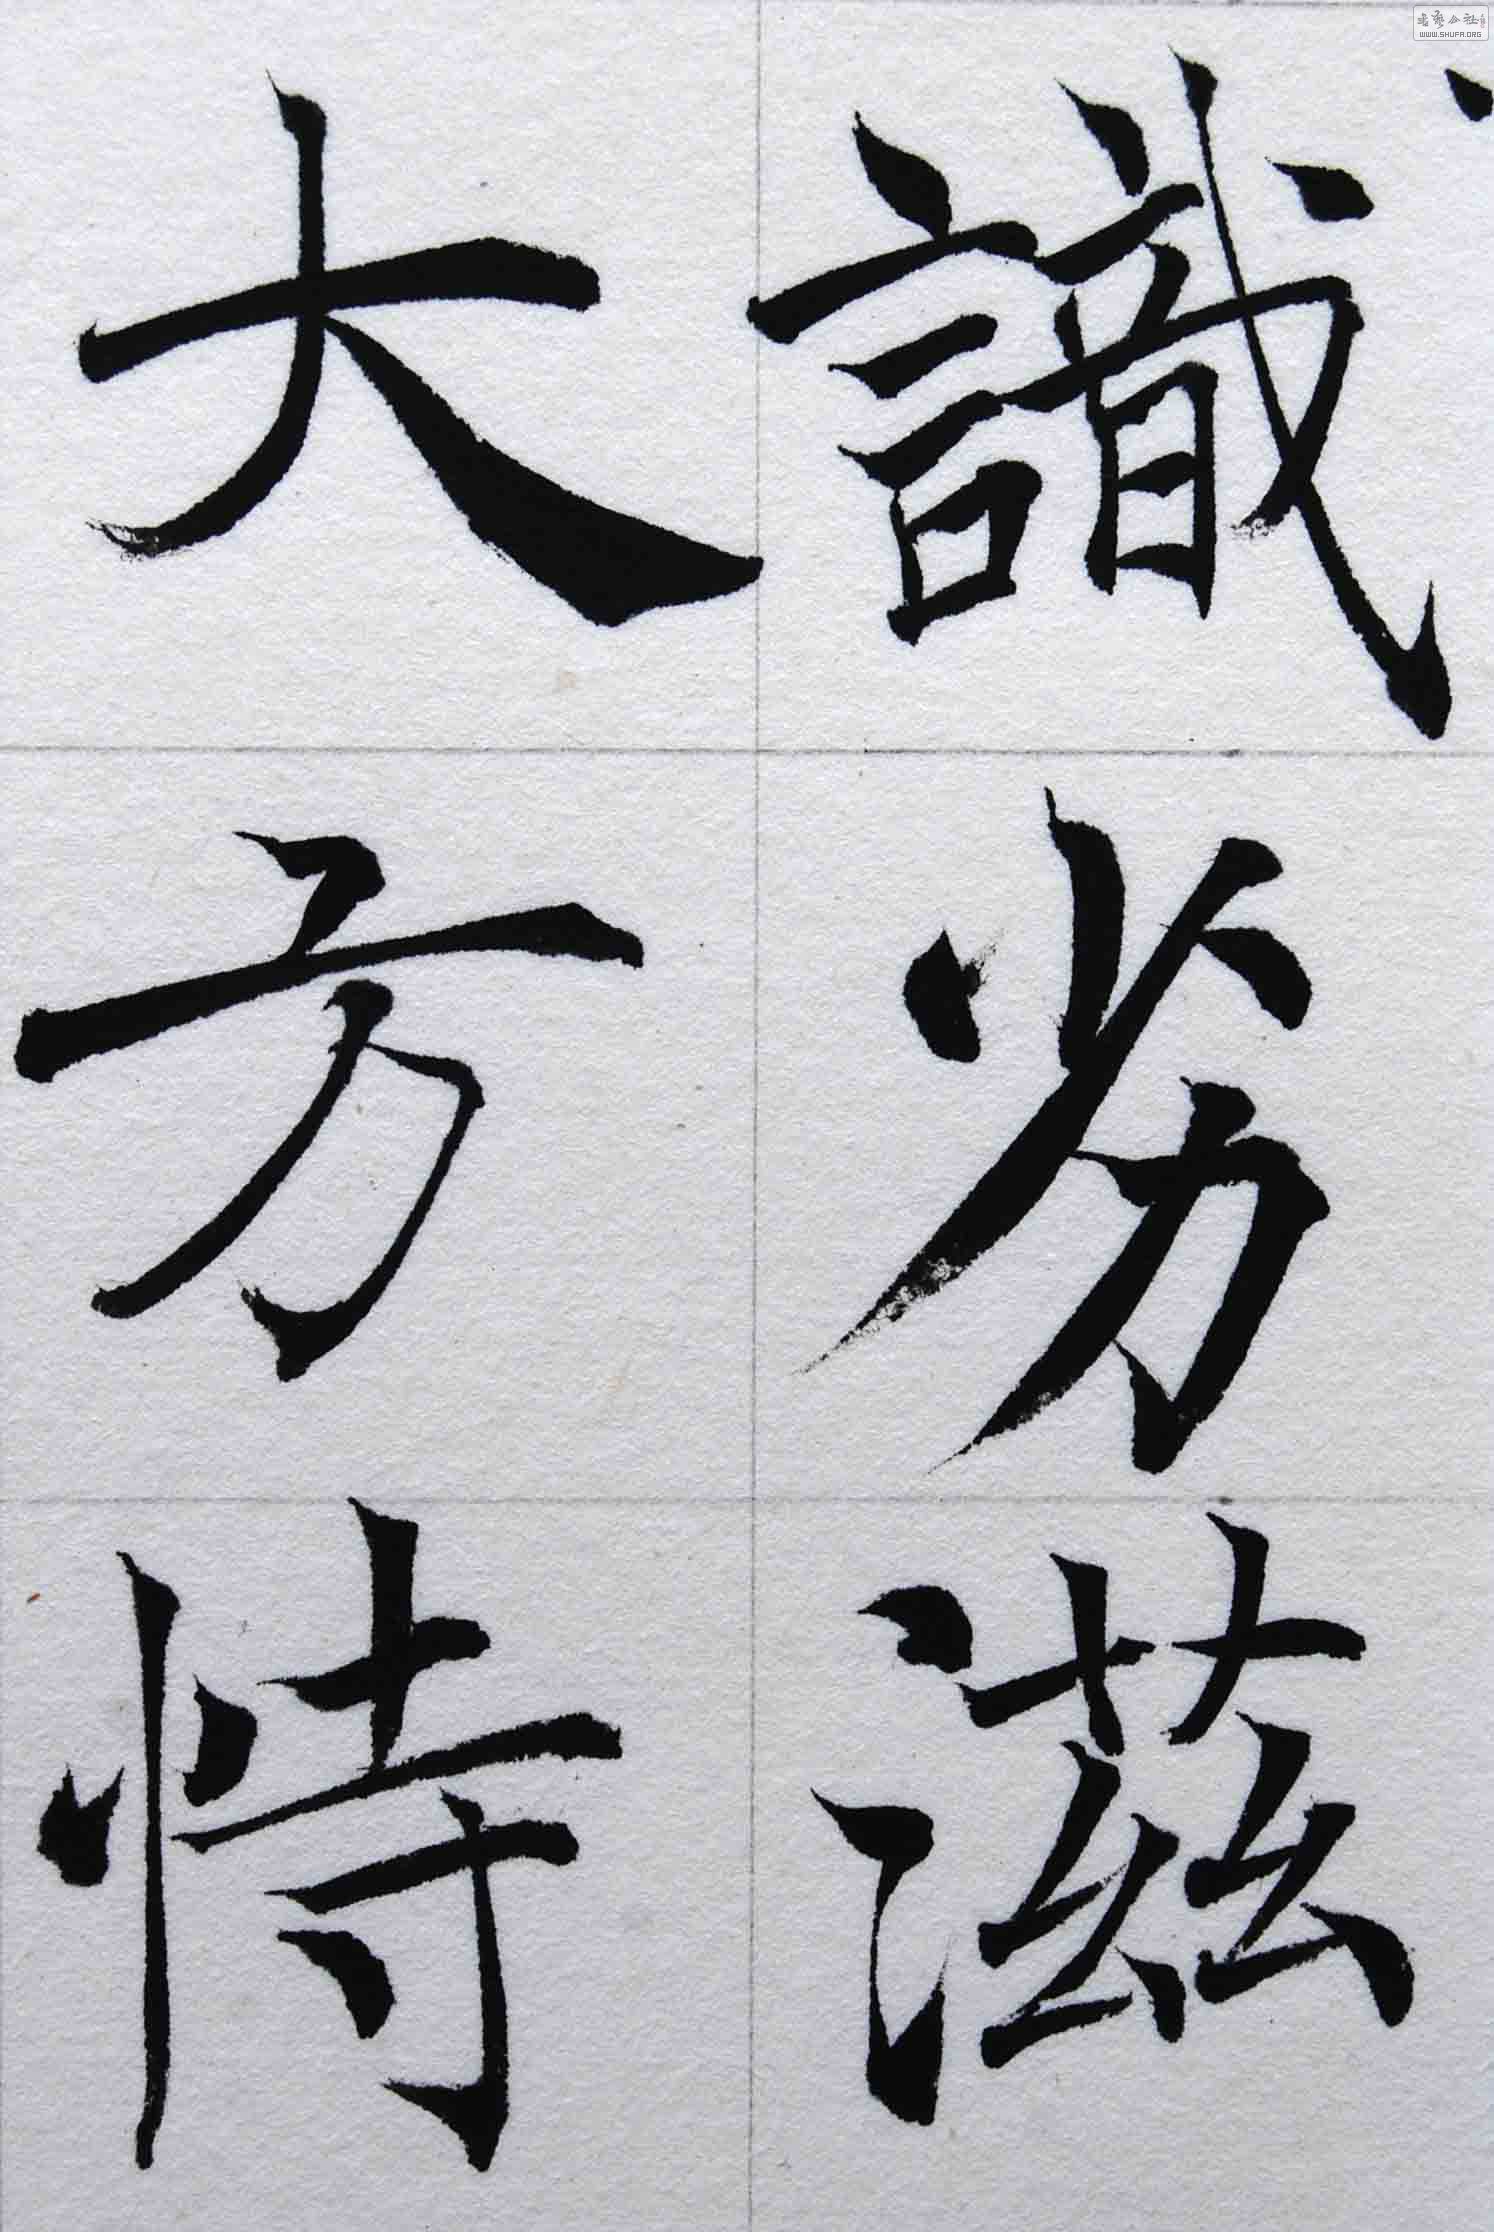 識劣滋
大方恃
書藝公社
WWW.SHUFA.ORG